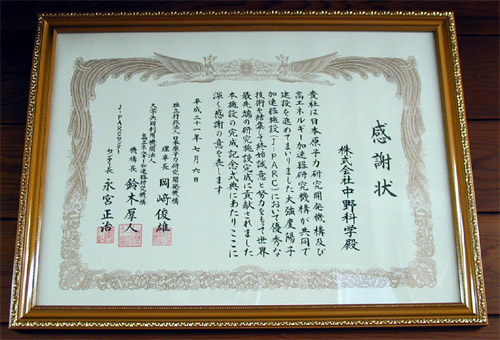 感謝状
株式会社中野科学殿
貴社は日本原子力研究開発機構及び
高エネルギー加速器研究機構が共同で
建設を進めてまいりました大強度陽子
加速器施設(J-PARC)において優秀な
技術を結集し終始誠意と努力をもって世界
最先端の研究施設完成に貢献されました
本施設の完成記念式典にあたりここに
深く感謝の意を表します
平成二十一年七月六日
独立行政法人日本原子力研究開発機構
理事長 岡﨑俊雄
大学共同利用機関法人
高エネルギー加速器研究機構
機構長 鈴木厚人
J-PARCセンター
センター長 永宮正治